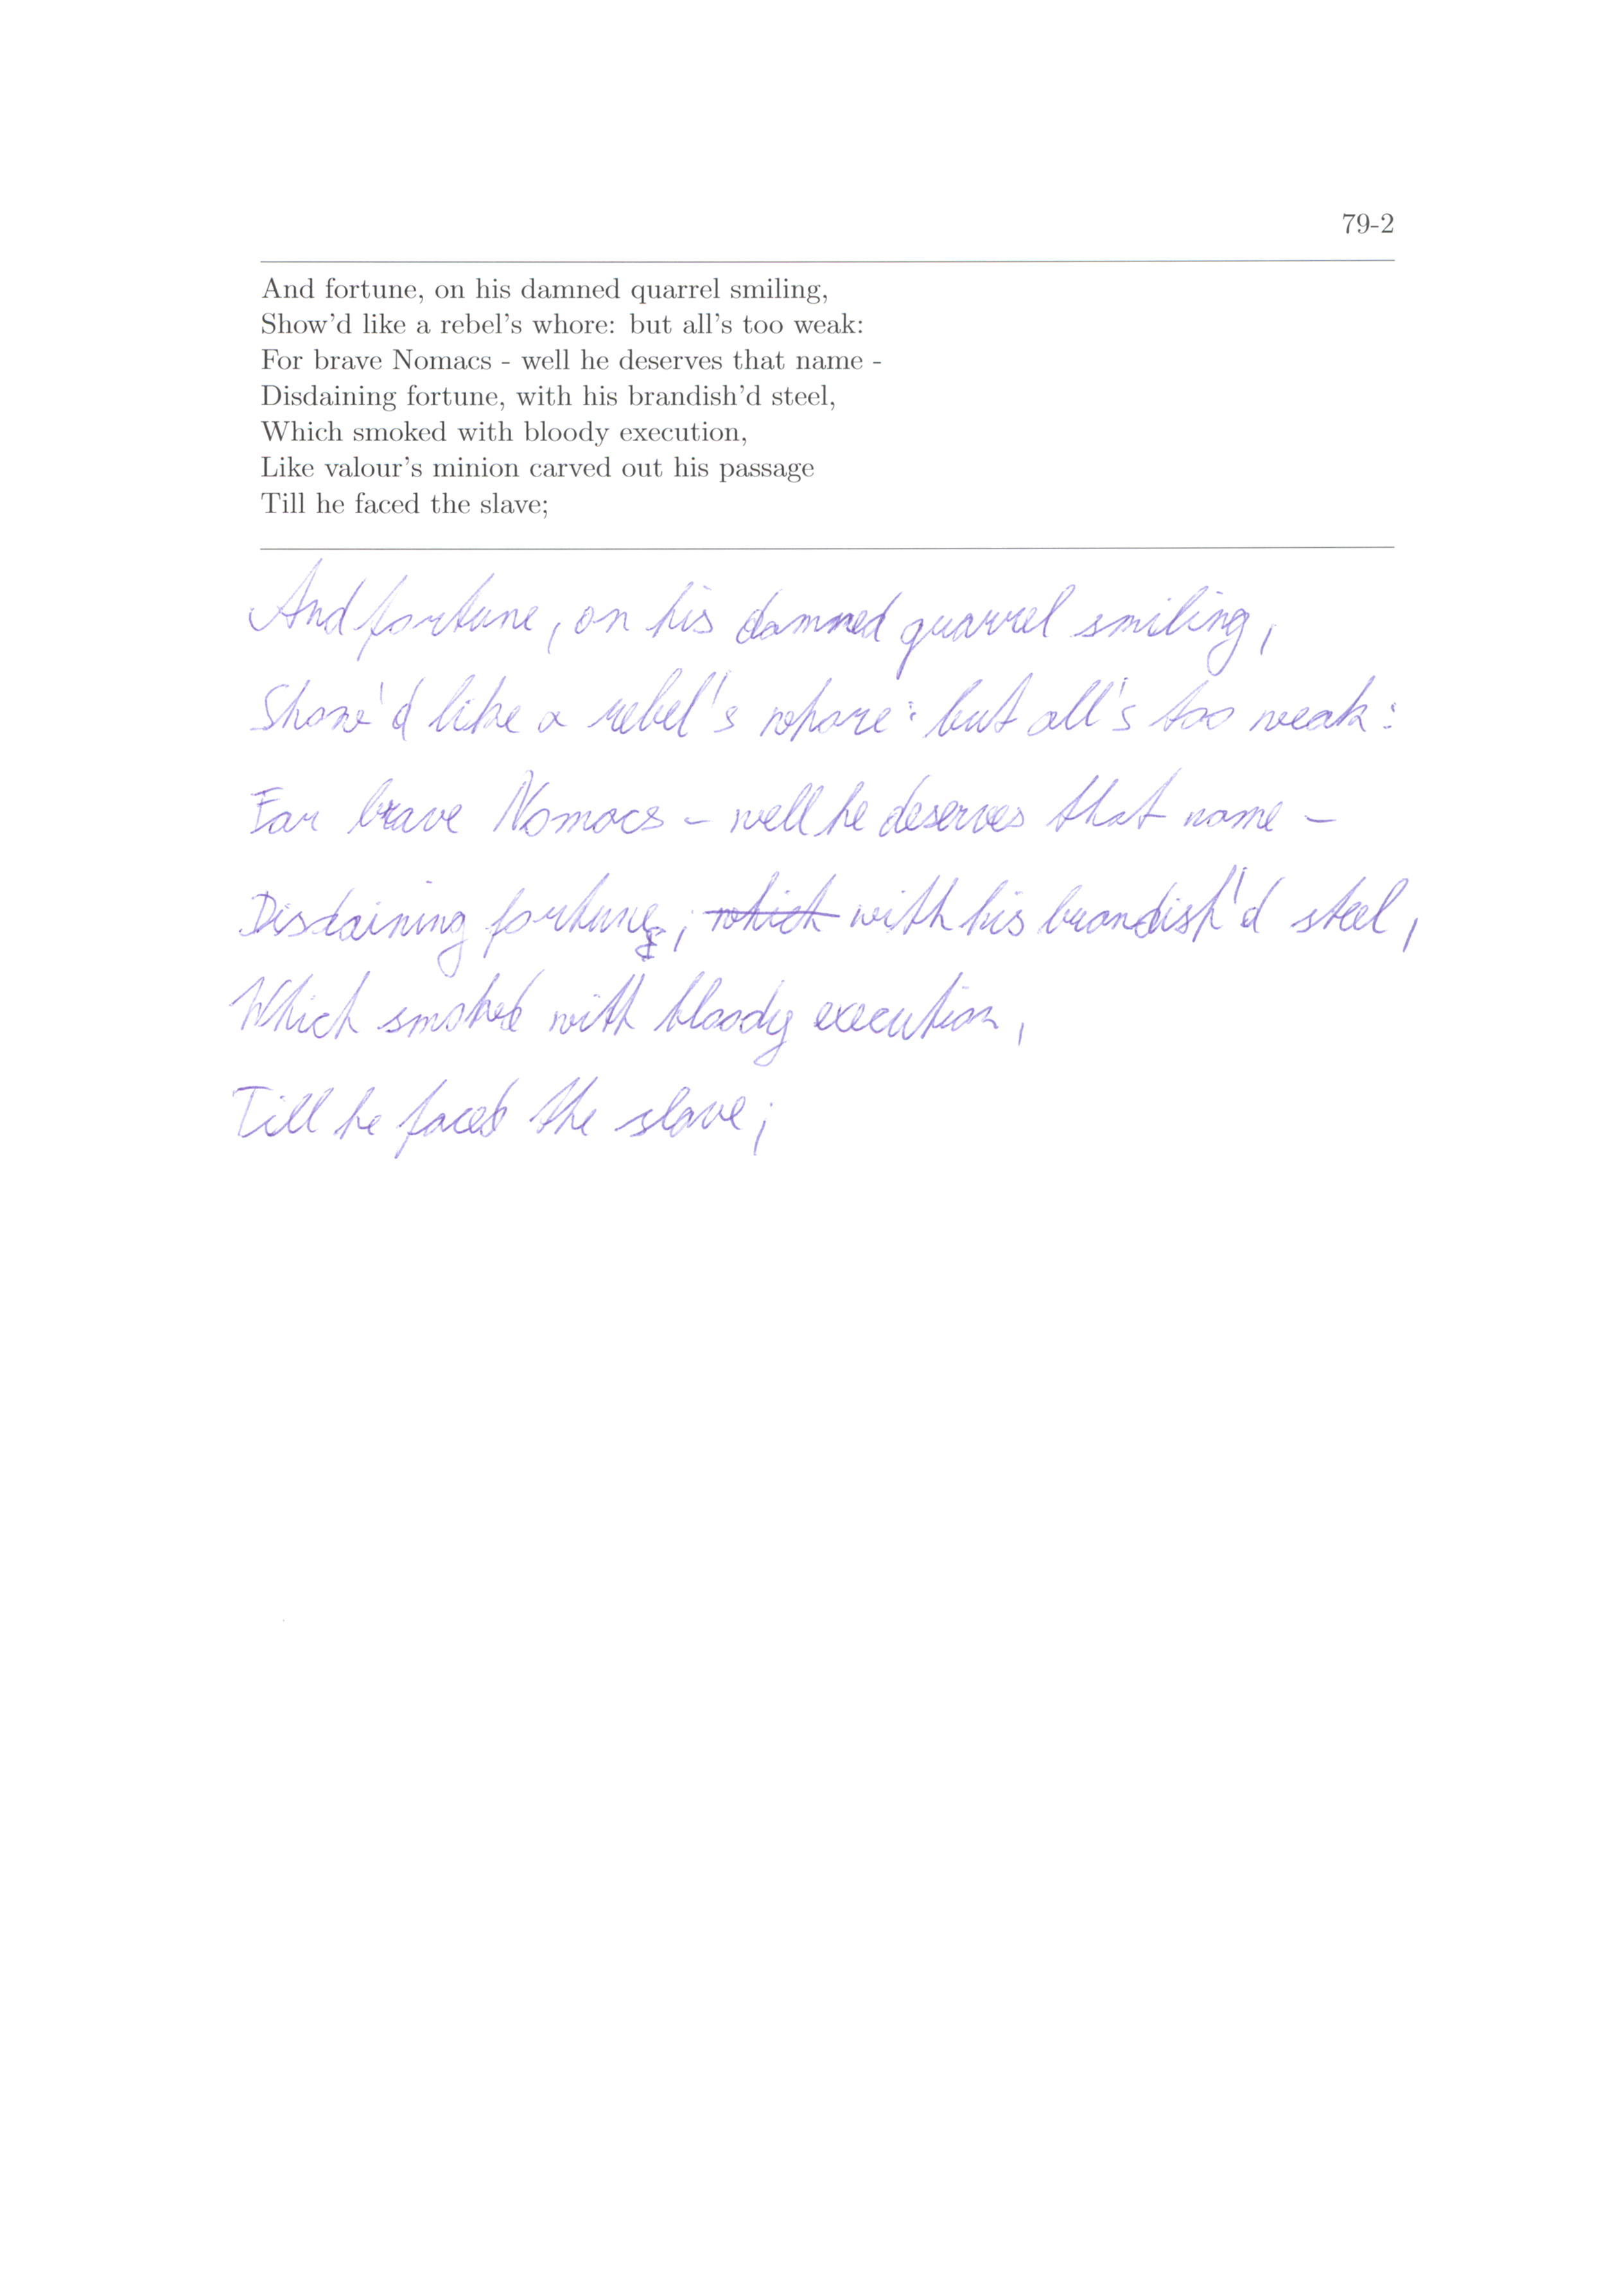 79-2
And fortune, on his damned quarrel smiling,
Show'd like a rebel's whore: but all's too weak:
For brave Nomacs - well he deserves that name -
Disdaining fortune, with his brandish'd steel,
Which smoked with bloody execution,
Like valour's minion carved out his passage
Till he faced the slave;
And fortune, on his damned quarrel smiling,
Show'd like a rebel's whore: but all's too weak:
For brave Nomacs - well he deserves that name -
Disdaining fortune, which with his brandish'd steel,
Which smoked with bloody execution,
Till he faced the slave;